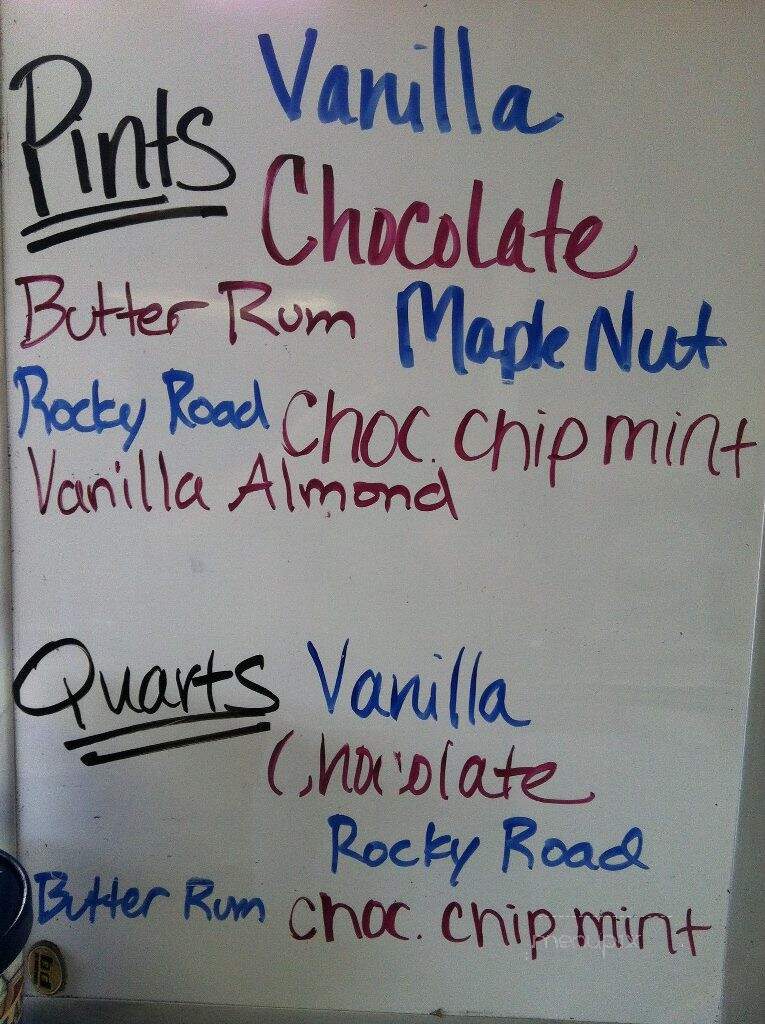 Pints Vanilla
Chocolate
Butter Rum Maple Nut
Rocky Road Choc. chip mint
Vanilla Almond
Quarts Vanilla
Chocolate
Rocky Road
Butter Rum choc. chip mint
menupix